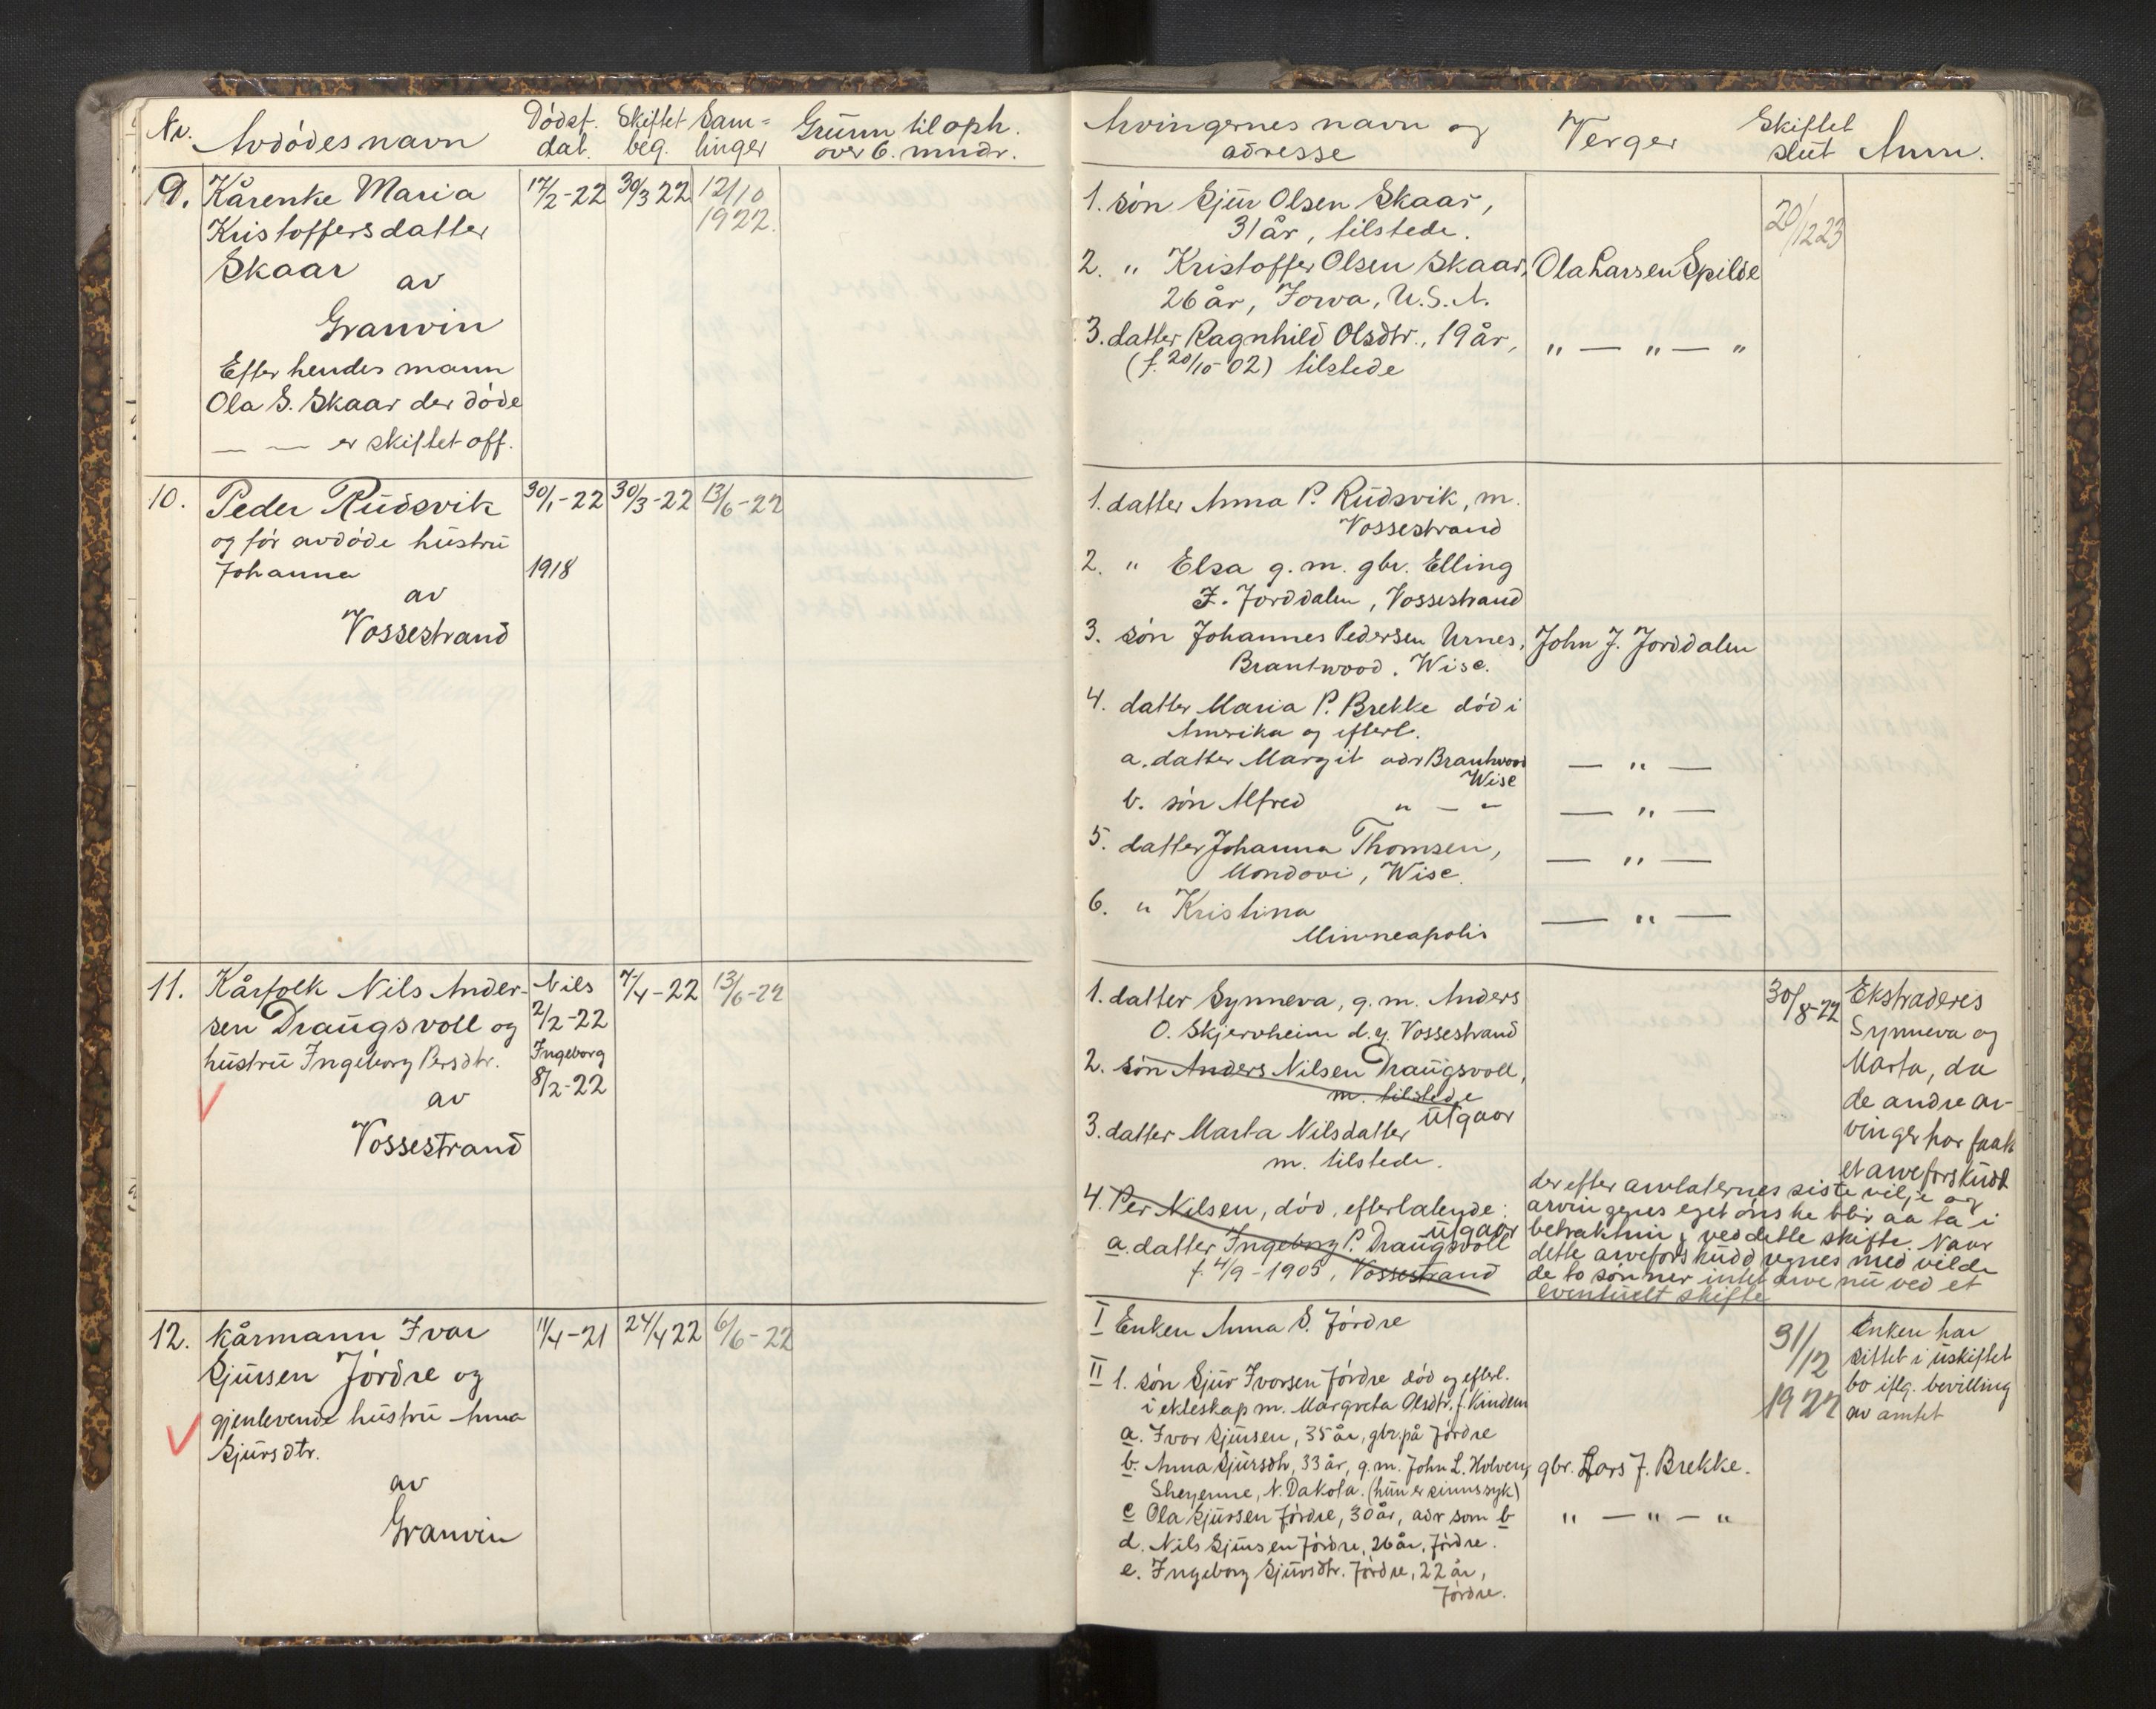 Nr. Avdødes navn Dødsf. dat. Skiftet beg. Sam=linger Grunn til oph. over 6. mndr.
9. Kårenke Maria 17/2-22 30/3 22 12/10
Kristoffersdatter 1922.
Skaar av
Granvin
Efter hendes mann
Ola S. Skaar der døde
— — er skiftet off.
10. Peder Rudsvik 30/1-22 30/3-22 13/6-22
og før avdøde hustru
Johanna 1918
av
Vossestrand
11. Kårfolk Nils Ander- Nils 7/4-22 13/6-22
sen Draugsvoll og 2/2-22
hustru Ingeborg Persdtr. Ingeborg
av 8/2-22
Vossestrand
12. Kårmann Ivar 11/4-21 24/4 22 6/6-22
Sjursen Jørdre og
gjenlevende hustru Anna
Sjursdtr.
av
Granvin
Arvingernes navn og adresse Verger Skiftet slut Anm.
1. søn Sjur Olsen Skaar,
31 år, tilstede. 20/12 23
2. " Kristoffer Olsen Skaar, Ola Larsen Spilde
26 år, Iowa, U.S.A.
3. datter Ragnhild Olsdtr., 19 år, " — " — "
(f. 20/10-02) tilstede
1. datter Anna P. Rudsvik, m.
Vossestrand
2. " Elsa g. m. gbr. Elling
J. Jorddalen, Vossestrand
3. søn Johannes Pedersen Urnes, John J. Jorddalen
Brantwood. Wisc.
4. datter Maria P. Brekke død i
Amerika og efterl.
a. datter Margit adr Brantwood — " —
Wisc
b. søn Alfred " — " — " —
5. datter Johanna Thomsen, — " —
Mondovi, Wisc.
6. " Kristina — " —
Minneapolis
1. datter Synneva, g. m. Anders 30/8-22 Ekstraderes
O. Skjervheim d.y. Vossestrand Synneva og
2. søn Anders Nilsen Draugsvoll, Marta, da
m. tilstede de andre ar-
utgaar
3. datter Marta Nilsdatter vinger har faat
m. tilstede. et arveforskudd
4. Per Nilsen, død, efterlatende: der efter arvlaternes siste vilje og
utgaar arvingenes eget ønske blir aa ta i
a. datter Ingeborg P. Draugsvoll betraktning ved dette skifte. Naar
f. 4/9-1905, Vossestrand dette arveforskudd regnes med vilde
de to sønner intet arve nu ved et
eventuelt skifte
I Enken Anna S. Jørdre 31/12 Enken har
1922 sittet i uskiftet
II 1. søn Sjur Ivarsen Jørdre død og efterl. bo iflg. bevilling
i ekteskap m. Margreta Olsdtr. f. Kindem av amtet
a. Ivar Sjursen, 35 år, gbr. på Jørdre
b. Anna Sjursdtr, 33 år, g. m. John L. Holven, gbr. Lars J. Brekke.
Sheyenne, N. Dakota. (hun er sinnssyk)
c Ola Sjursen Jørdre, 30 år, adr som b " — " — "
d. Nils Sjursen Jørdre, 26 år, Jørdre.
e. Ingeborg Sjursdtr. Jørdre, 22 år,
Jørdre.